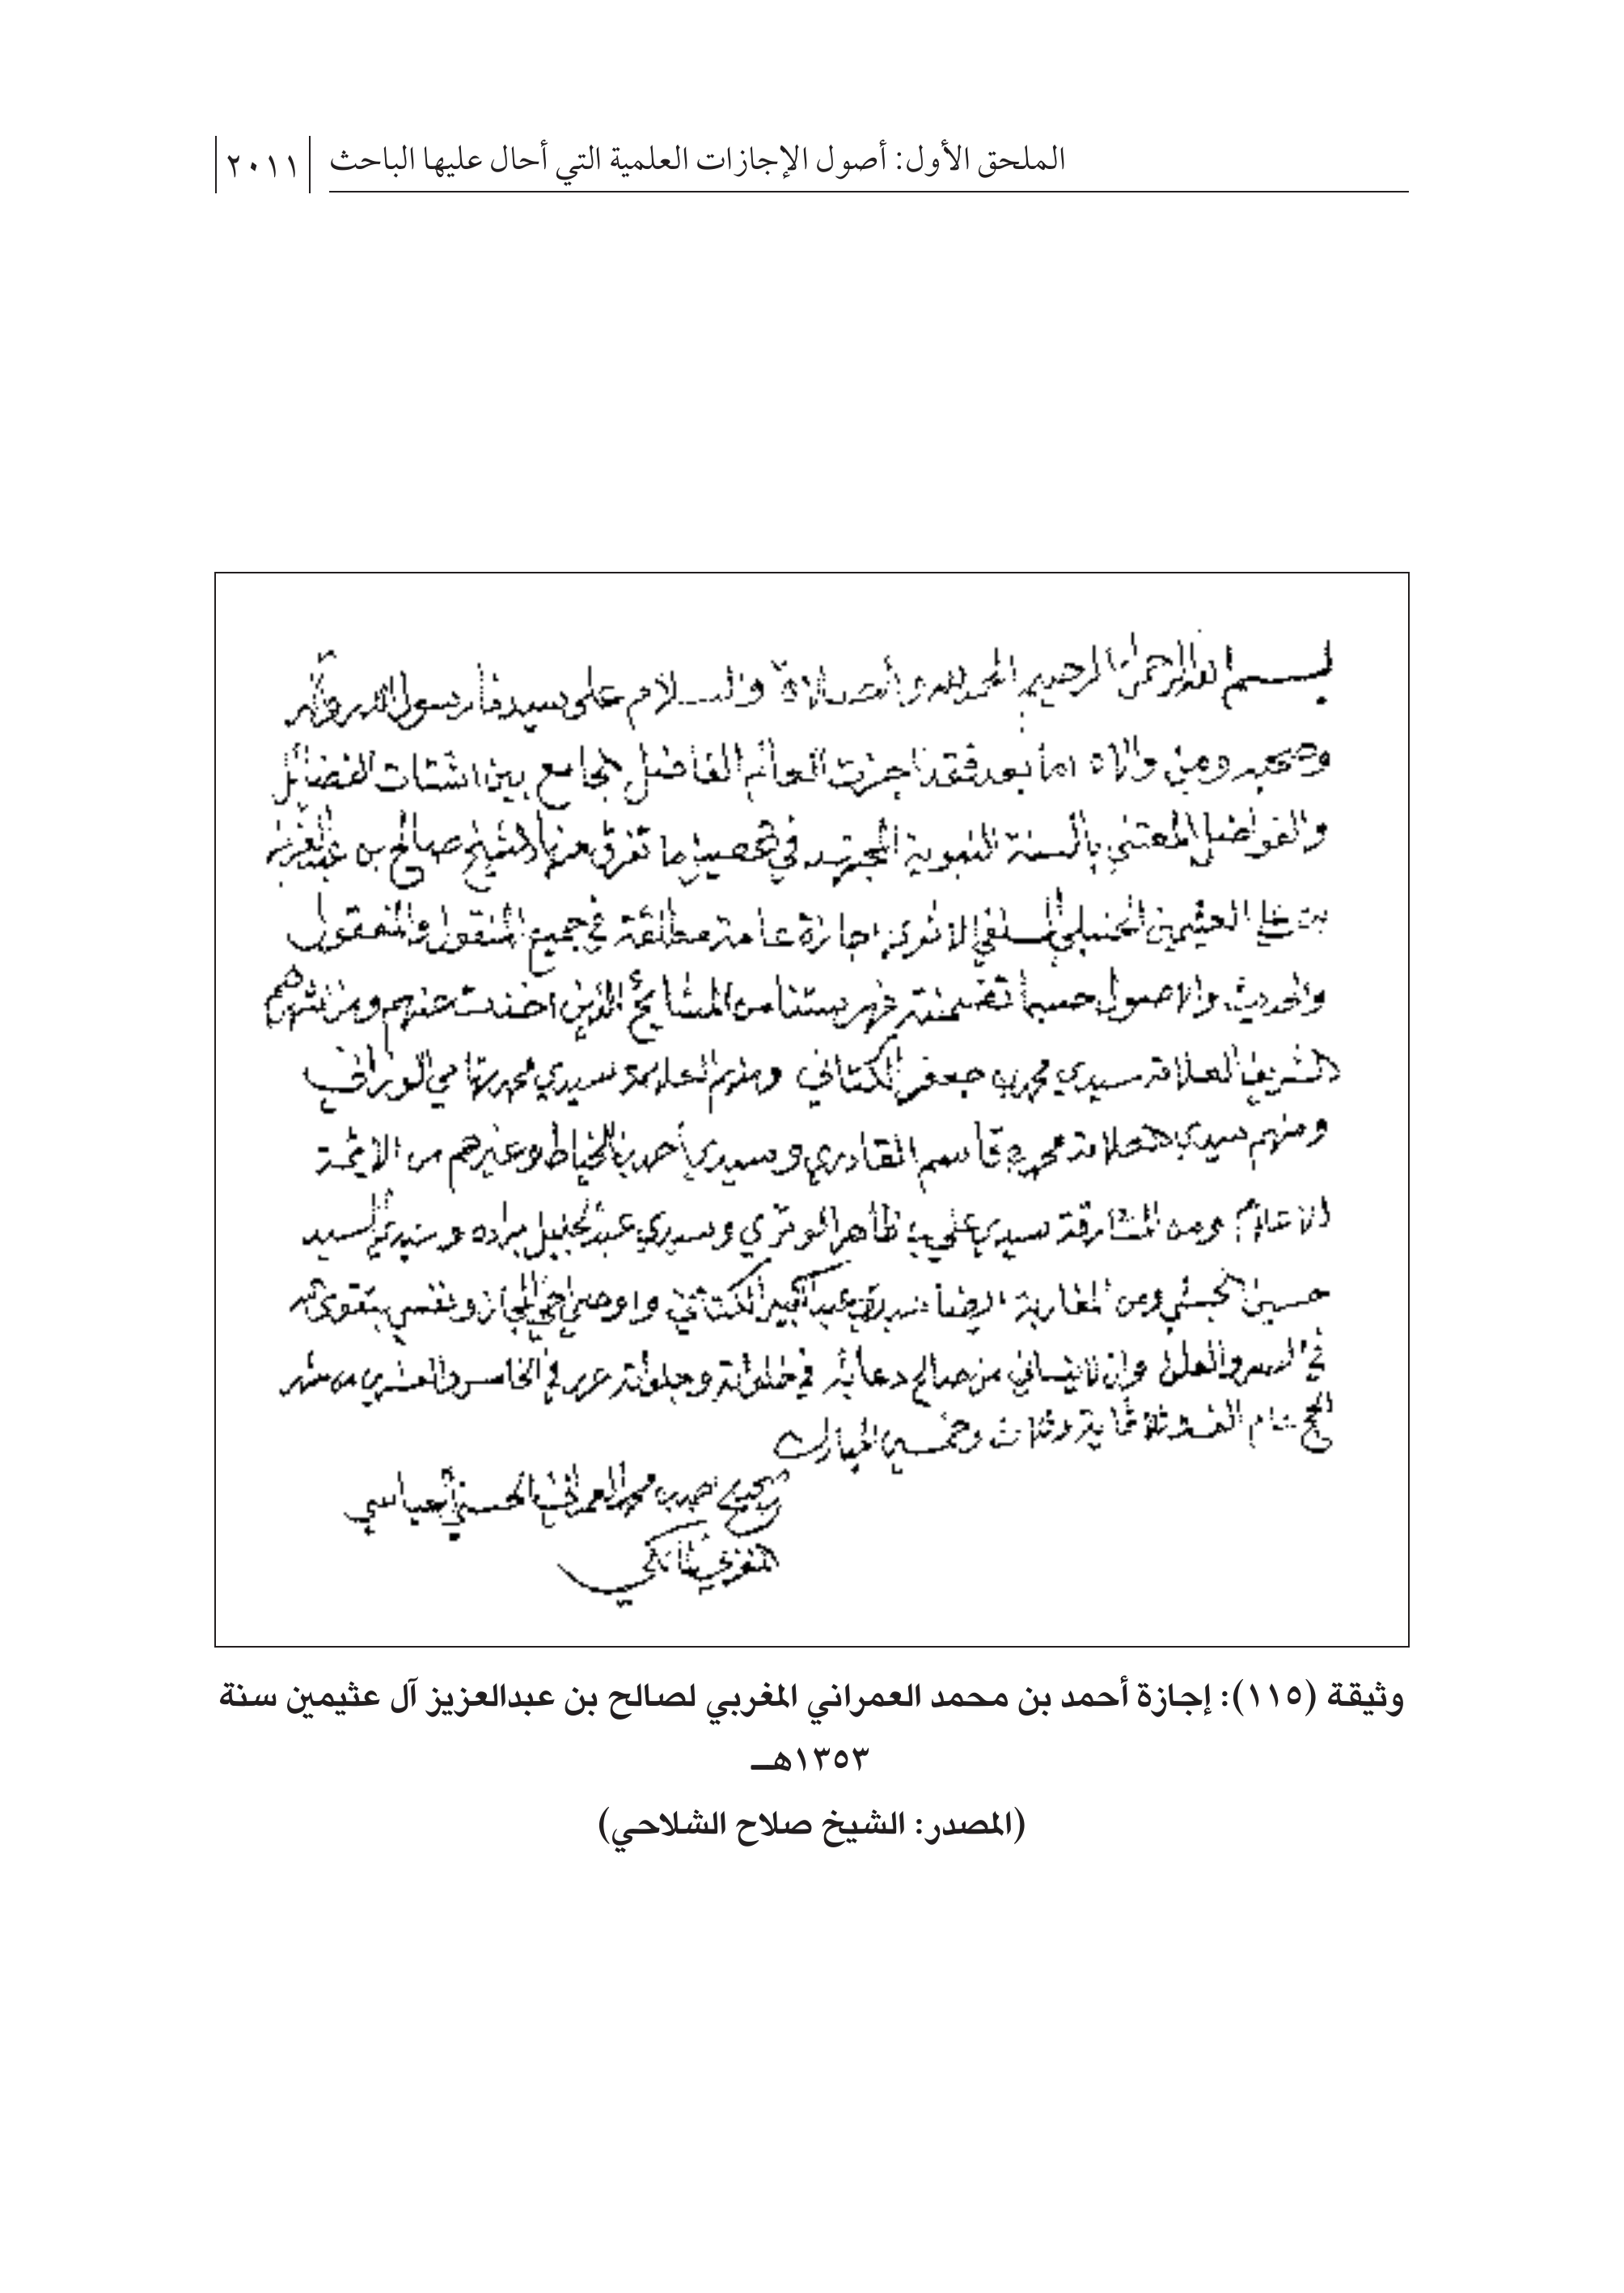 الملحق الأول: أصول الإجازات العلمية التي أحال عليها الباحث ٢٠١١
بسم الله الرحمن الرحيم الحمد لله والصلاة والسلام على سيدنا رسول الله وآله
وصحبه ومن والاه اما بعد فقد اجزت العالم الفاضل الجامع بين اشتات الفضائل
والفواضل المعتني بالسنة النبوية المجتهد في تحصيل ما تفرق عنها الشيخ صالح بن عبد العزيز
بن علي العثيمين الحنبلي السلفي الاثري اجازة عامة مطلقة في جميع المنقول والمعقول
والحديث والاصول حسبما تضمنته فهرستنا من المشايخ الذين اخذت عنهم ومن
الشريف العلامة سيدي محمد بن جعفر الكتاني ومنهم العلامة سيدي محمد
ومنهم سيدي العلامة محمد قاسم القادري وسيدي أحمد بن الخياط وغيرهم من الائمة
الاعلام ومن المشارقة سيدي علي بن ظاهر الوتري وسيدي عبد الجليل براده السيد
حسين الحبشي ومن المغاربة ايضا عبد الكبير الكتاني واوصي المجاز ونفسي بتقوى الله
في السر والعلن وان لا ينساني من صالح دعائه في خلواته وجلواته حرر في الخامس والعشرين من شهر
الحج عام الف وثلاثماية وثلاث وخمسين المبارك
احمد بن محمد العمراني الحسني العباسي
المغربي المالكي
وثيقة (١١٥): إجازة أحمد بن محمد العمراني المغربي لصالح بن عبدالعزيز آل عثيمين سنة
١٣٥٣هـ
(المصدر: الشيخ صلاح الشلاحي)